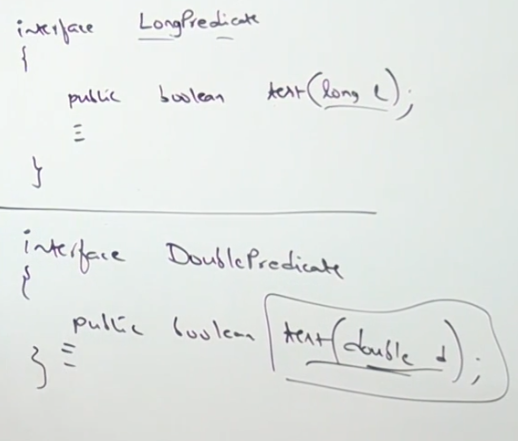 interface LongPredicate
{
public boolean test(long l);
}
interface DoublePredicate
{
public boolean test(double d);
}